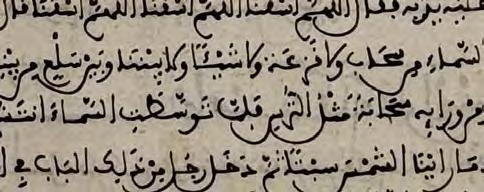 عليه يديه فقال اللهم اسقنا اللهم اسقنا اللهم اسقنا قال
السماء من سحاب ولا قزعة ولا شيئا ولا بيننا وبين سلع من بيت
من ورايه سحابة مثل الترس فلما توسطت السماء انتشر
ما راينا الشمس سبتا ثم دخل رجل من ذلك الباب في ا